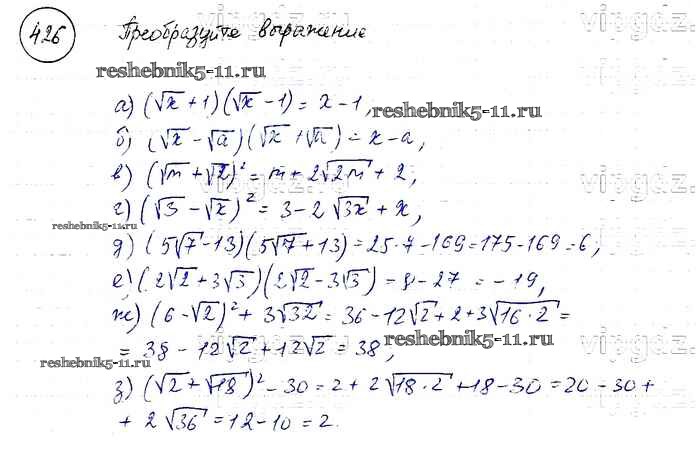 426 Преобразуйте выражение
vipgdz.
reshebnik5-11.ru
а) (√x + 1)(√x - 1) = x - 1,
reshebnik5-11.ru
б) (√x - √a)(√x + √a) = x - a,
в) (√m + √2)² = m + 2√2m + 2,
vipgdz.
г) (√3 - √x)² = 3 - 2√3x + x,
reshebnik5-11.ru
д) (5√7 - 13)(5√7 + 13) = 25·7 - 169 = 175 - 169 = 6,
vipgdz.ru
е) (2√2 + 3√3)(2√2 - 3√3) = 8 - 27 = - 19,
ж) (6 - √2)² + 3√32 = 36 - 12√2 + 2 + 3√16·2 =
reshebnik5-11.ru
= 38 - 12√2 + 12√2 = 38,
reshebnik5-11.ru
з) (√2 + √18)² - 30 = 2 + 2√18·2 + 18 - 30 = 20 - 30 +
+ 2√36 = 12 - 10 = 2.